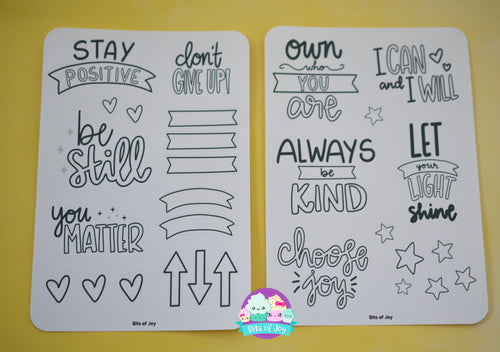 STAY
POSITIVE
don't
GIVE UP!
be
Still
you
MATTER
Bits of Joy
own
who
YOU
are
I CAN
and I WILL
ALWAYS
be
KIND
LET
your
LIGHT
shine
choose
joy
Bits of Joy
Bits of Joy